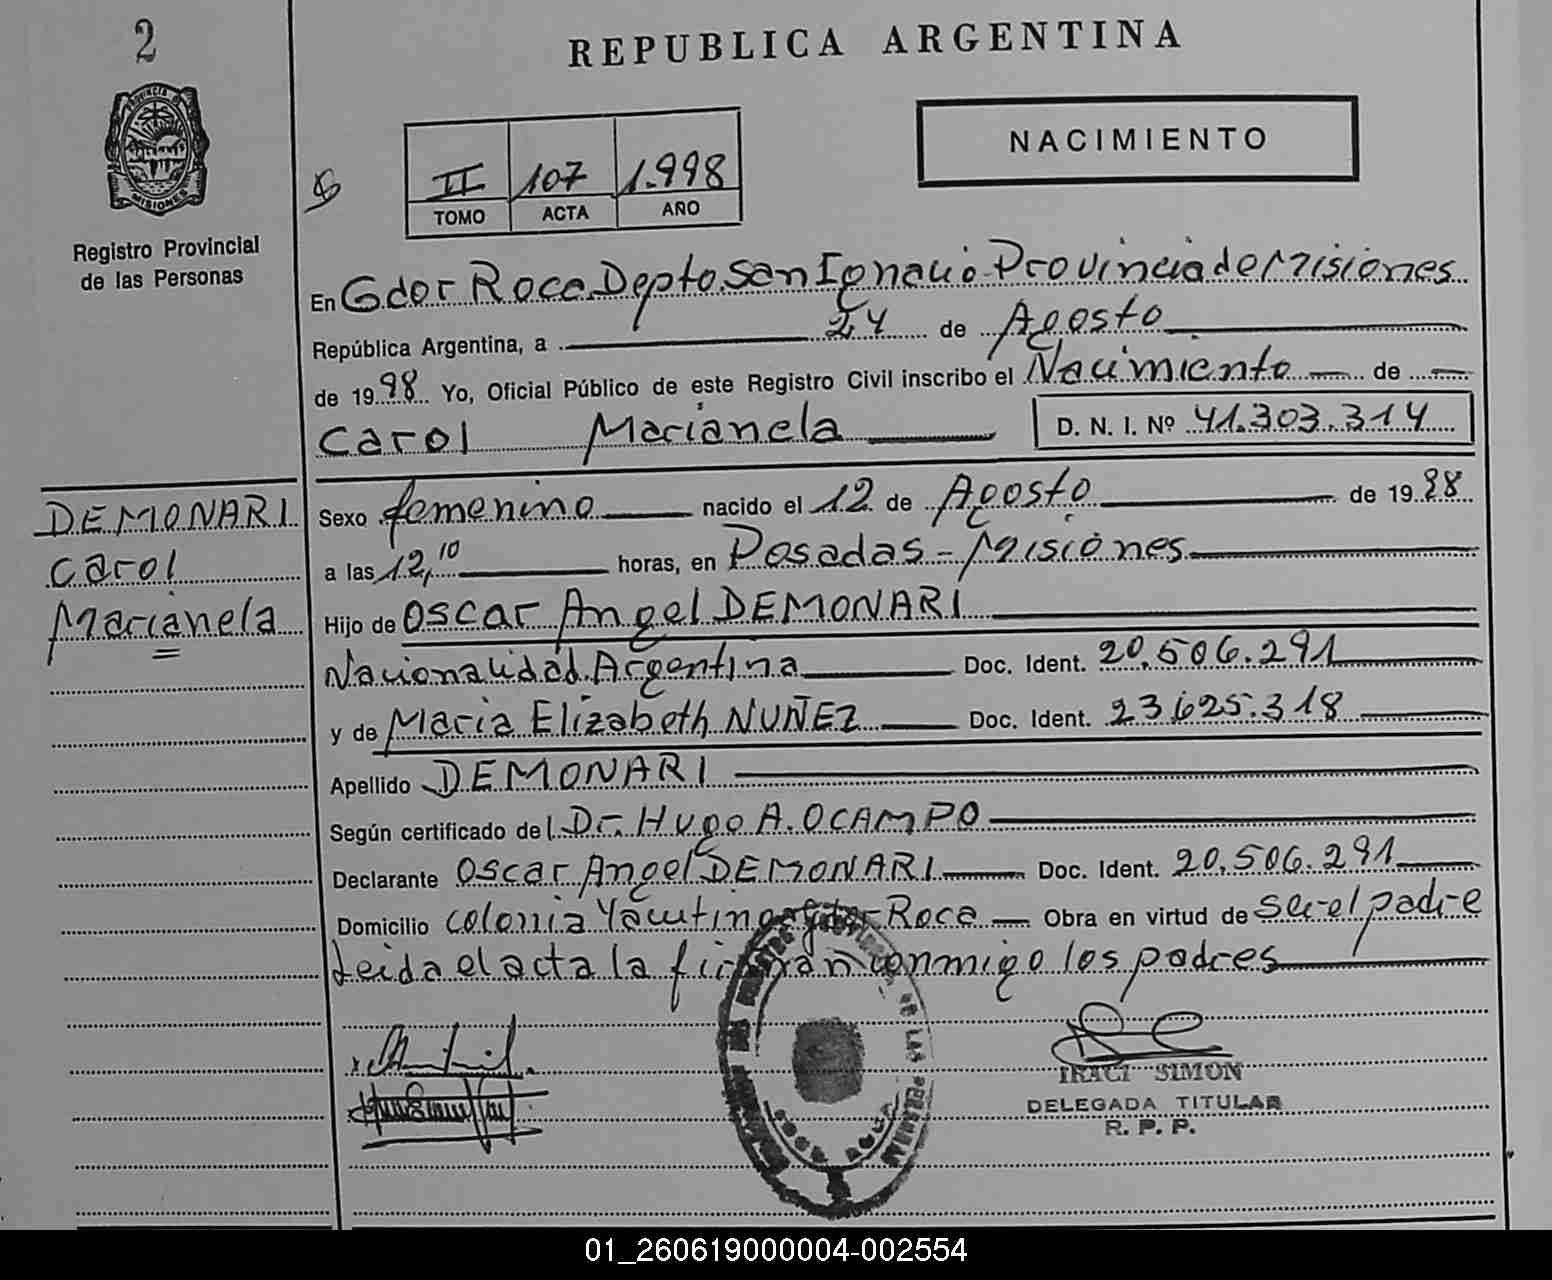 2
REPUBLICA ARGENTINA
NACIMIENTO
PROVINCIA DE
MISIONES
Registro Provincial
de las Personas
II 107 1.998
TOMO ACTA AÑO
En Gdor Roca Depto San Ignacio Provincia de Misiones
República Argentina, a 24 de Agosto
de 1998 Yo, Oficial Público de este Registro Civil inscribo el Nacimiento de
Carol Marianela D. N. I. Nº 41.303.314
DEMONARI
Carol
Marianela
Sexo femenino nacido el 12 de Agosto de 1998
a las 12,10 horas, en Posadas - Misiones
Hijo de Oscar Angel DEMONARI
Nacionalidad Argentina Doc. Ident. 20.506.291
y de Maria Elizabeth NUÑEZ Doc. Ident. 23.625.318
Apellido DEMONARI
Según certificado del Dr. Hugo A. OCAMPO
Declarante Oscar Angel DEMONARI Doc. Ident. 20.506.291
Domicilio Colonia Yacutinga Gdor Roca Obra en virtud de ser el padre
Leida el acta la firman conmigo los padres
DE LAS PERSONAS
IRACI SIMON
DELEGADA TITULAR
R. P. P.
01_260619000004-002554